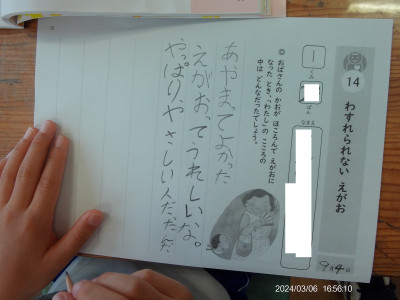 14
わすれられない えがお
1
くみ
ばん
なまえ
◎ おばさんの かおが ほころんで えがおに
なった とき、「わたし」の こころの
中は どんなだったでしょう。
あやまってよかった
えがおってうれしいな。
やっぱりやさしい人だったんだ
9月4日
2024/03/06 16:56:10